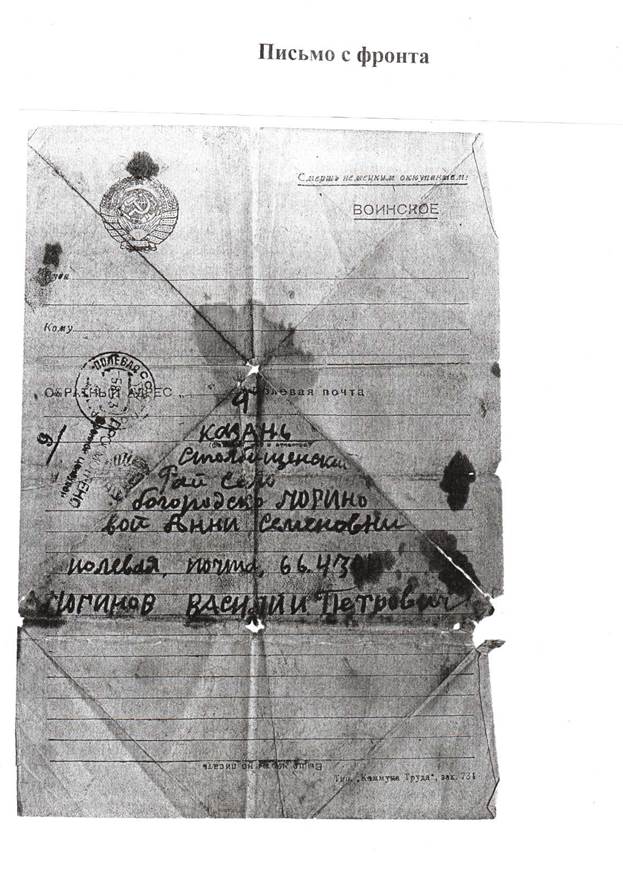 Письмо с фронта
Смерть немецким оккупантам!
ВОИНСКОЕ
Куда
Кому
ПОЛЕВАЯ
ОБРАТНЫЙ АДРЕС
Полевая почта
9
г
КАЗАНЬ
Столбищенски
Рай Село
богородско МОГИНО
вой Анни Семеновни
полевая, почта, 66.430
МОГИНОВ ВАСИЛИИ ПЕтрович
Выше можно писать
Тип. „Коммуна Труда", зак. 731